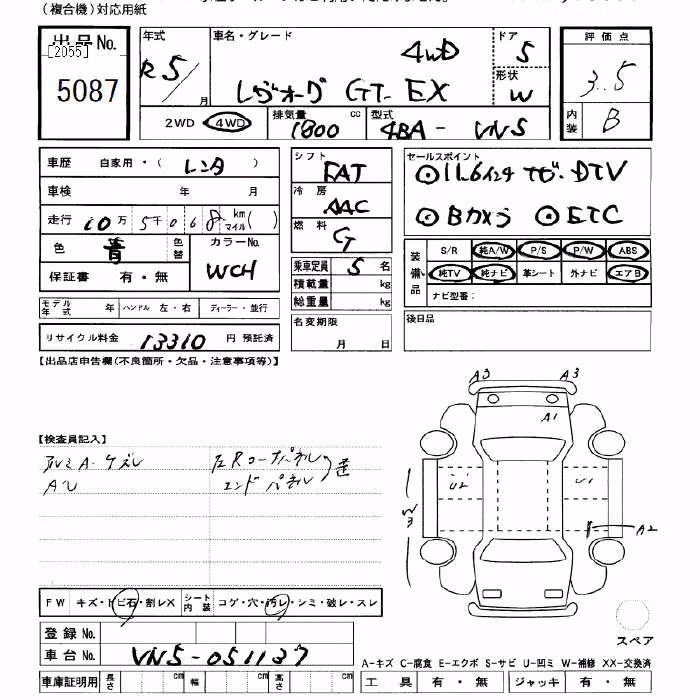 (複合機)対応用紙
出品No.
[2055]
5087
年式
R5/
月
車名・グレード
4WD
レヴォーグ GT-EX
ドア
5
形状
W
2WD 4WD
排気量
1800 cc
型式
4BA- VN5
評価点
3.5
内装
B
車歴 自家用・( レンタ )
車検 年 月
走行 10万 5千 0 6 8 km マイル ( )
色 青 色替
カラーNo.
WCH
保証書 有・無
モデル年式 年 ハンドル 左・右 ディーラー・並行
リサイクル料金 13310 円 預託済
シフト
FAT
冷房
AAC
燃料
G
乗車定員 5 名
積載量 kg
総重量 kg
名変期限
月 日
セールスポイント
◎11.6インチナビ・DTV
◎Bカメラ ◎ETC
装備品
S/R 純A/W P/S P/W ABS
純TV 純ナビ 革シート 外ナビ エアB
ナビ型番:
後日品
【出品店申告欄(不良箇所・欠品・注意事項等)】
【検査員記入】
アルミA・ケズレ
左Rコーナーパネル
エンドパネル
A3 A3
A1
U2
U1
W3
A2
スペア
FW キズ・トビ石・割レX シート内装 コゲ・穴・汚レ・シミ・破レ・スレ
登録No.
車台No. VN5-051137
車庫証明用 長さ cm 幅 cm 高さ cm
A-キズ C-腐食 E-エクボ S-サビ U-凹ミ W-補修 XX-交換済
工具 有・無 ジャッキ 有・無